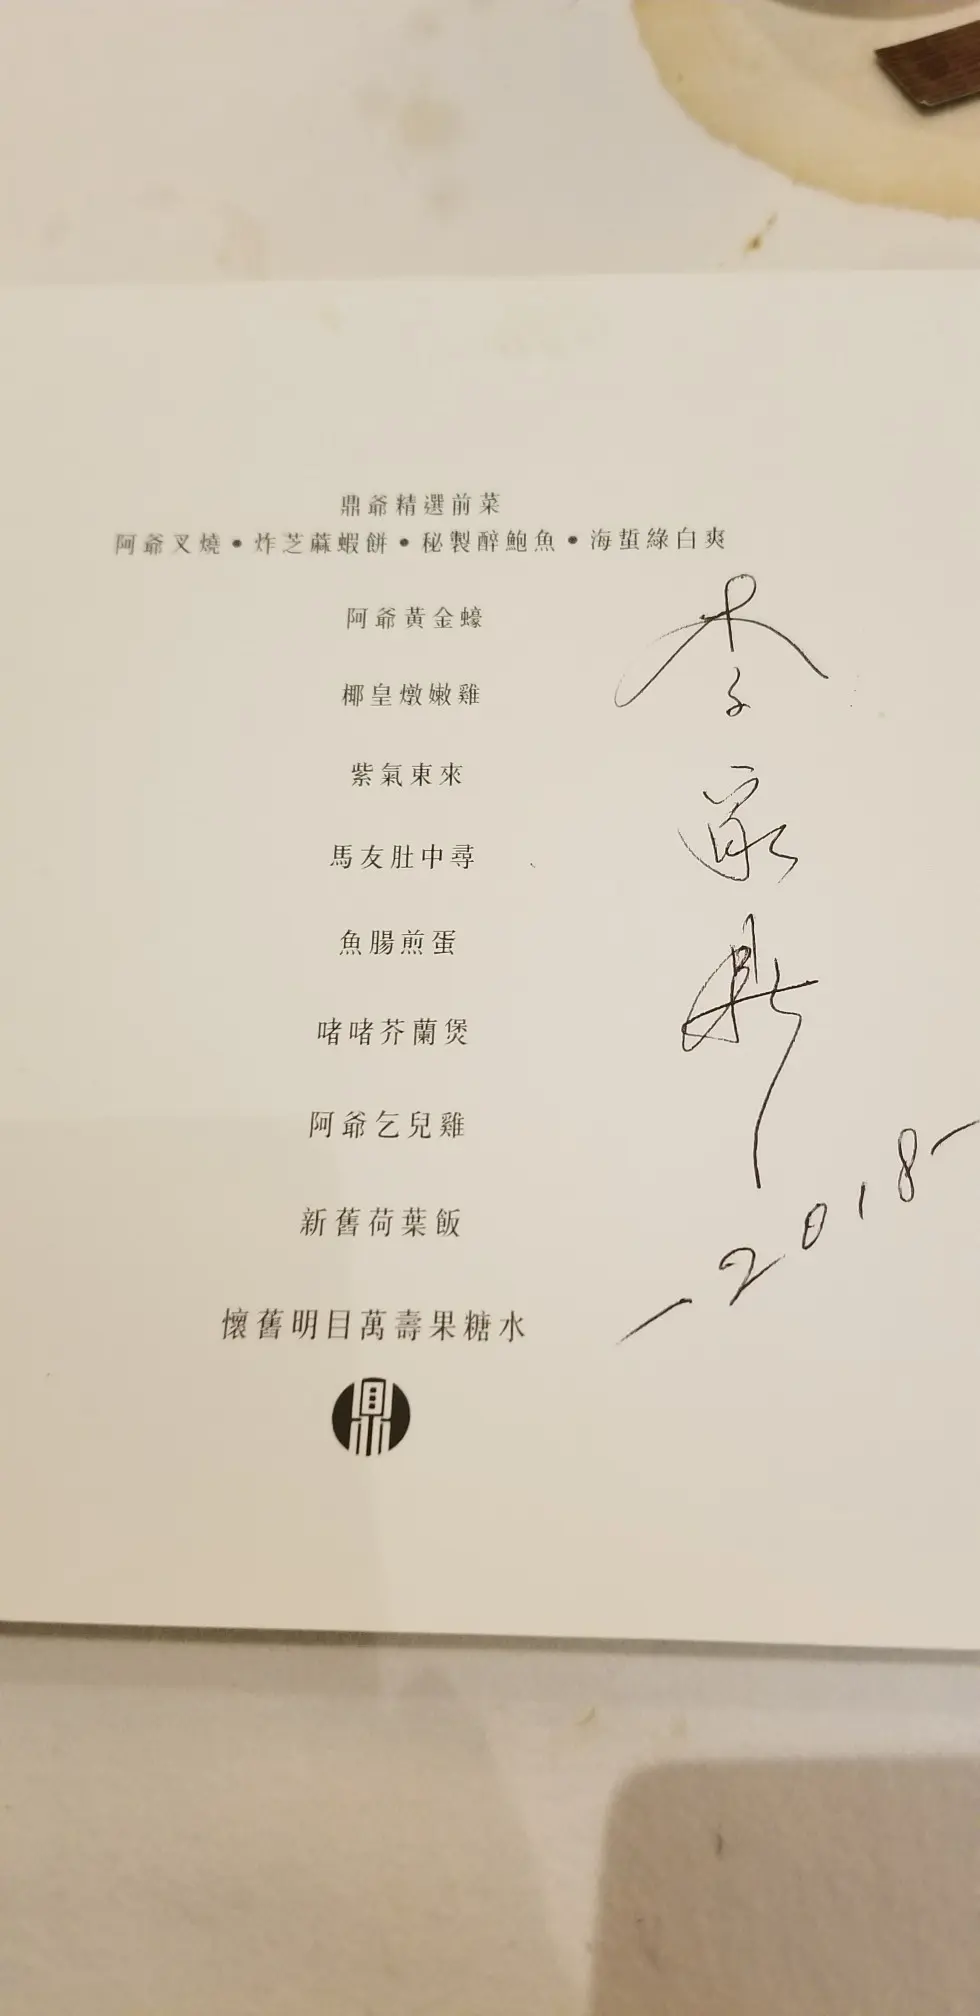 鼎爺精選前菜
阿爺叉燒•炸芝蔴蝦餅•秘製醉鮑魚•海蜇綠白爽
阿爺黃金蠔
椰皇燉嫩雞
紫氣東來
馬友肚中尋
魚腸煎蛋
啫啫芥蘭煲
阿爺乞兒雞
新舊荷葉飯
懷舊明目萬壽果糖水
鼎
李家鼎
-2018-